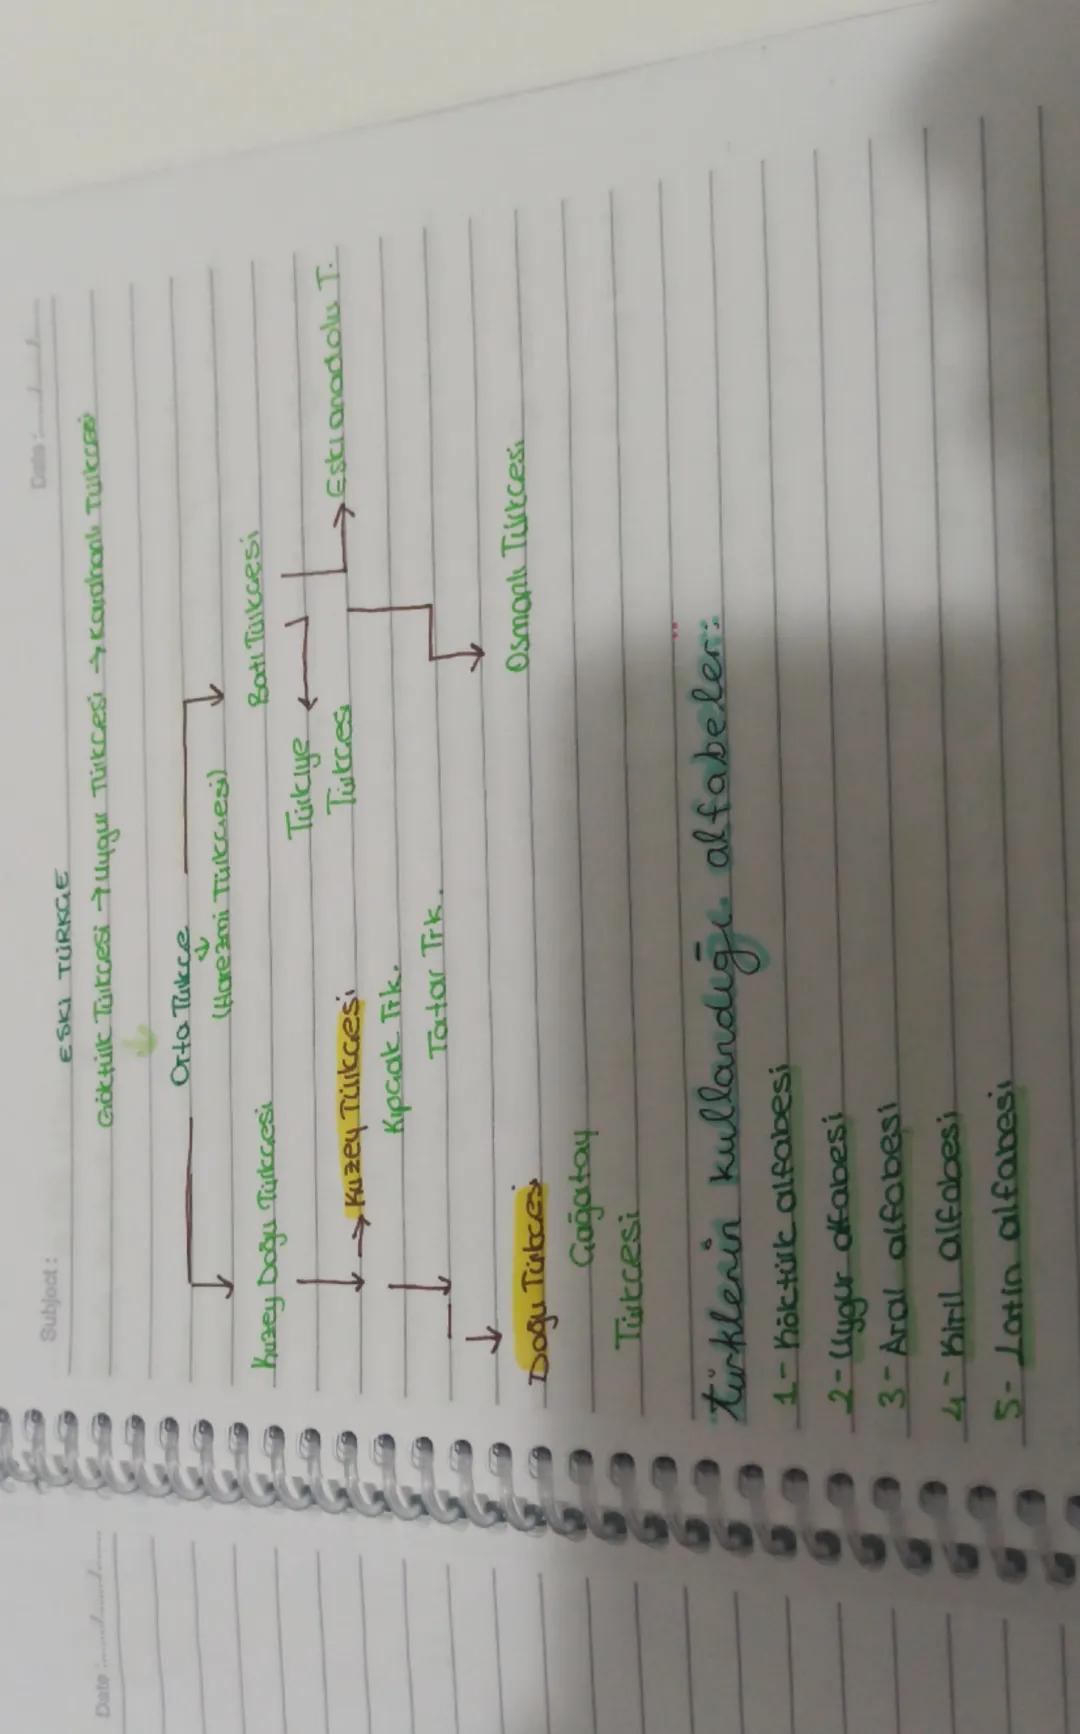 Subject:
Date:
ESKI TÜRKÇE
Göktürk Türkcesi → Uygur Türkcesi → Karahanlı Türkcesi
Orta Türkce
(Harezmi Türkcesi)
Kuzey Doğu Türkcesi
Batı Türkcesi
Türkiye
Türkcesi
Eski anadolu T.
Kuzey Türkcesi
Kıpcak Trk.
Tatar Trk.
Osmanlı Türkcesi
Doğu Türkcesi
Cağatay
Türkcesi
türklerin kullandığı alfabeler:
1- köktürk alfabesi
2- Uygur alfabesi
3- Aral alfabesi
4- kiril alfabesi
5- Latin alfabesi
Date: